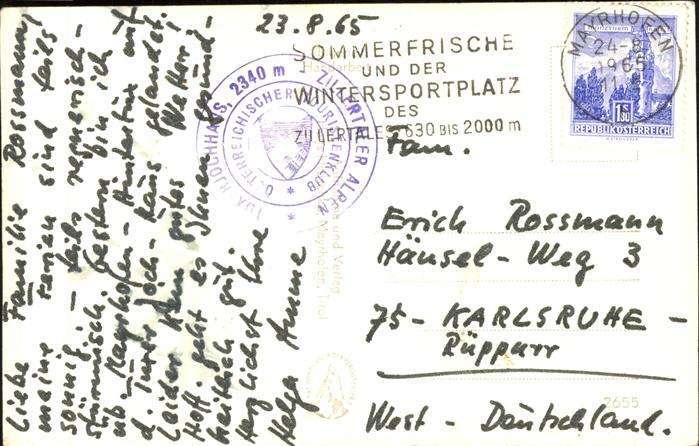 23.8.65
Liebe Familie Rossmann
meine Ferien sind teils
sonnig, - teils regnerisch-
stürmisch. Gestern bin ich
üb. Mayrhofen - Hintertux auf
d. Tuxer-Joch-Haus gelandet.
Leider kein gutes Wetter!
Hoff. geht es Ihnen gesund-
heitlich gut.
Herzlichst Ihre
Helga
SOMMERFRISCHE
UND DER
WINTERSPORTPLATZ
DES
ZILLERTALES 630 BIS 2000 m
MAYRHOFEN
24-8
1965
11
1.50
REPUBLIK ÖSTERREICH
TUXERJOCHHAUS, 2340 m ZILLERTALER ALPEN
ÖSTERREICHISCHER TOURISTENKLUB
Fam.
Erich Rossmann
Hänsel-Weg 3
75-KARLSRUHE-
Rüppurr
West-Deutschland.
und Verlag
Mayrhofen, Tirol
7655